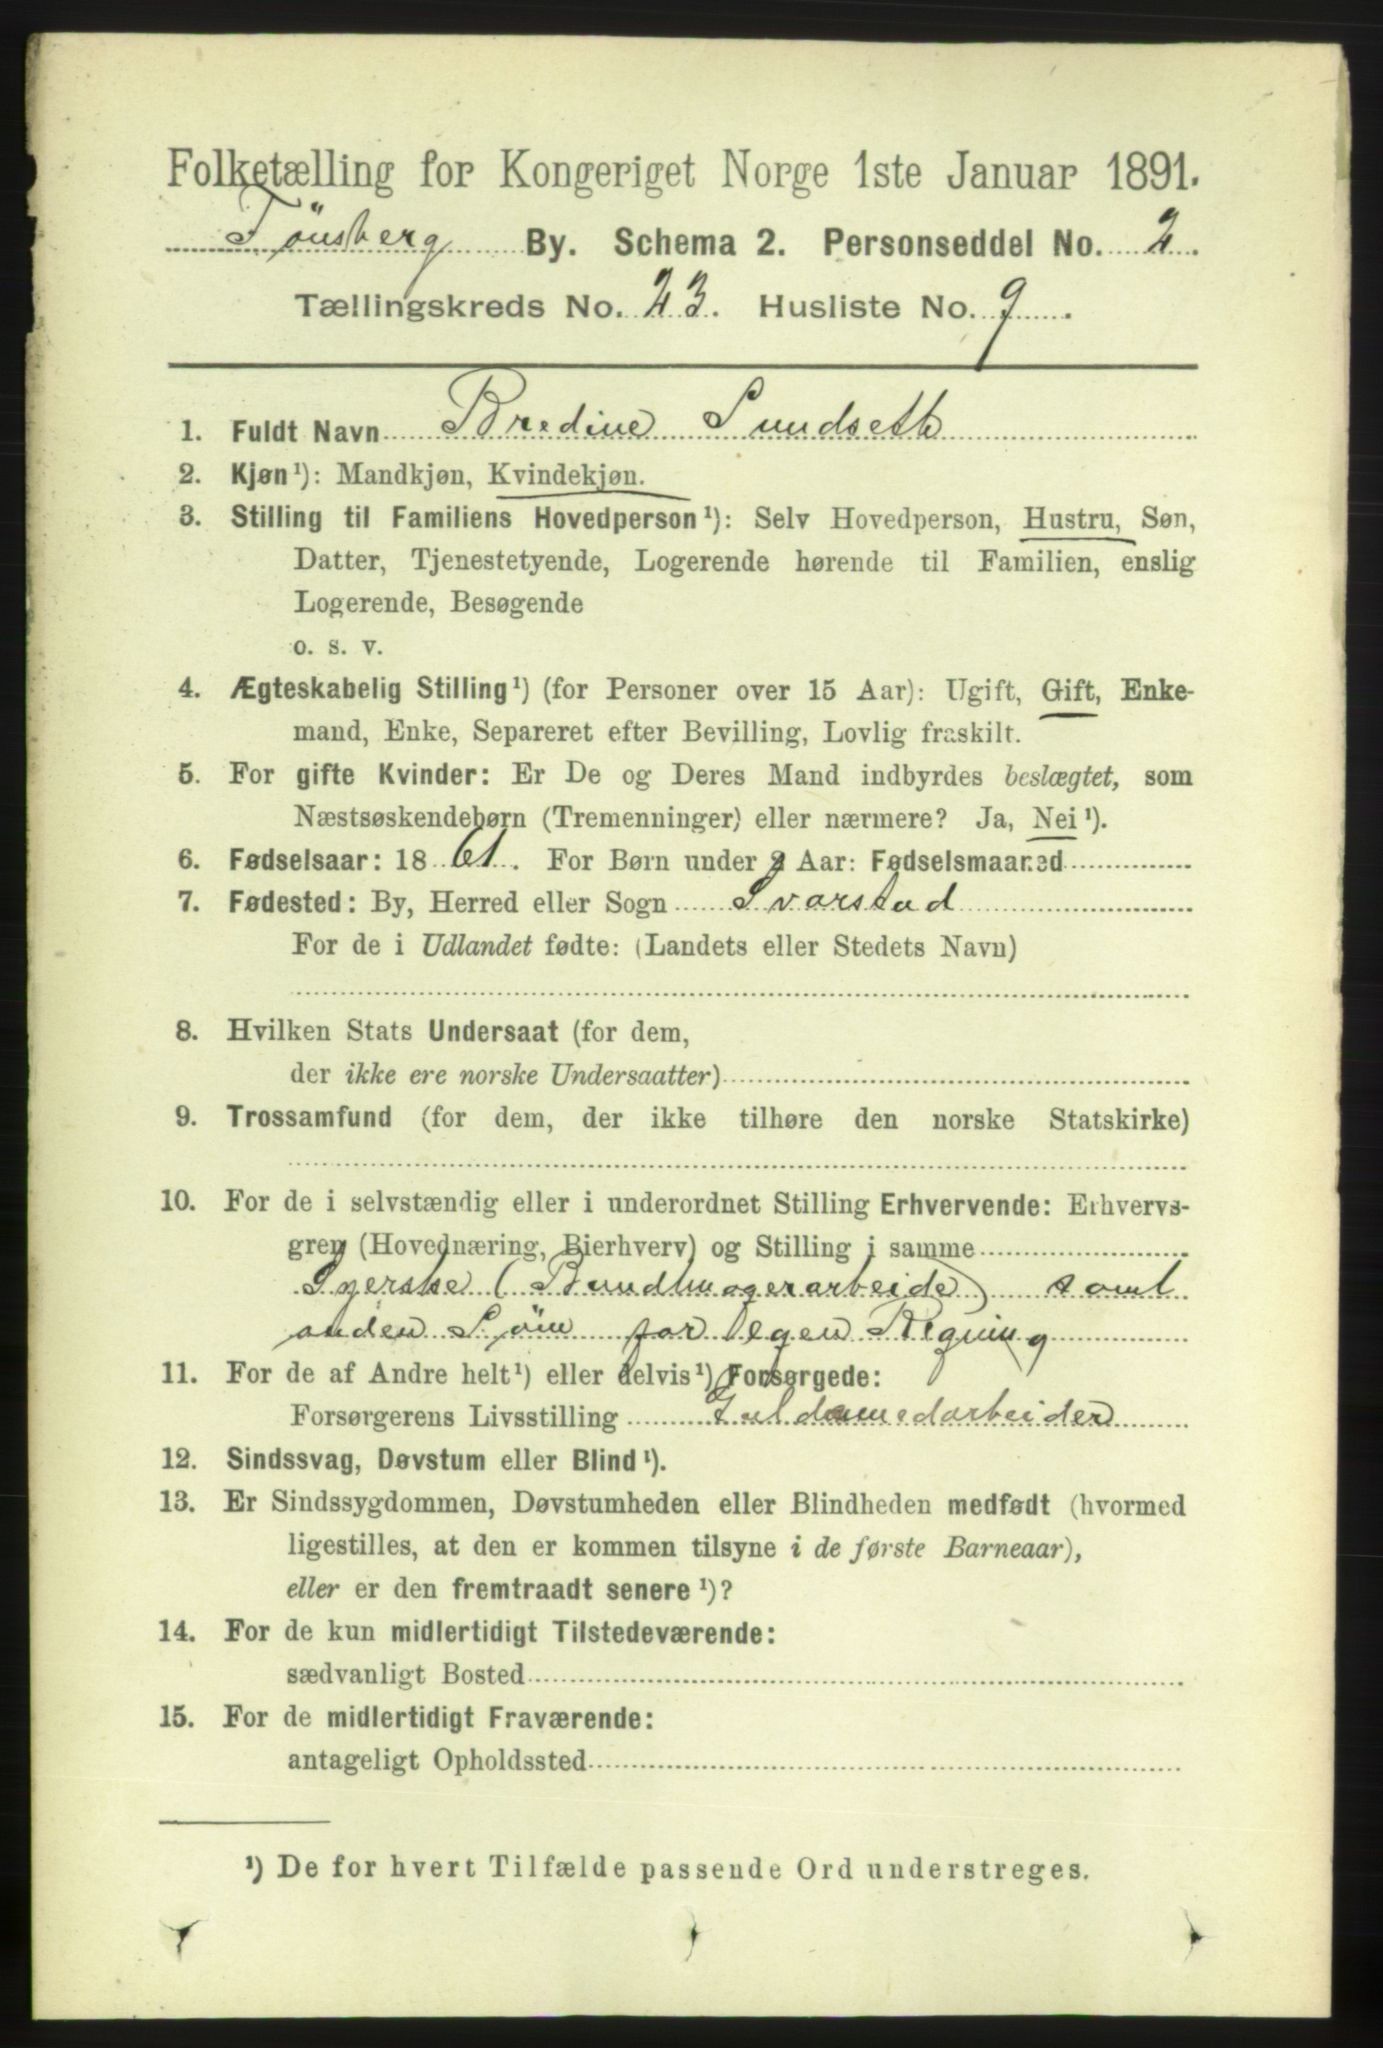 Folketælling for Kongeriget Norge 1ste Januar 1891.
Tönsberg By. Schema 2. Personseddel No. 2.
Tællingskreds No. 23. Husliste No. 9.
1. Fuldt Navn Bredine Sundseth
2. Kjøn¹): Mandkjøn, Kvindekjøn.
3. Stilling til Familiens Hovedperson¹): Selv Hovedperson, Hustru, Søn,
Datter, Tjenestetyende, Logerende hørende til Familien, enslig
Logerende, Besøgende
o. s. v.
4. Ægteskabelig Stilling¹) (for Personer over 15 Aar): Ugift, Gift, Enke-
mand, Enke, Separeret efter Bevilling, Lovlig fraskilt.
5. For gifte Kvinder: Er De og Deres Mand indbyrdes beslægtet, som
Næstsøskendebørn (Tremenninger) eller nærmere? Ja, Nei¹).
6. Fødselsaar: 1861. For Børn under 2 Aar: Fødselsmaaned
7. Fødested: By, Herred eller Sogn Svarstad
For de i Udlandet fødte: (Landets eller Stedets Navn)
8. Hvilken Stats Undersaat (for dem,
der ikke ere norske Undersaatter)
9. Trossamfund (for dem, der ikke tilhøre den norske Statskirke)
10. For de i selvstændig eller i underordnet Stilling Erhvervende: Erhvervs-
gren (Hovednæring, Bierhverv) og Stilling i samme
Syerske (Bundtmagerarbeide) samt
anden Söm for egen Regning
11. For de af Andre helt¹) eller delvis¹) Forsørgede:
Forsørgerens Livsstilling Guldsmedarbeider
12. Sindssvag, Døvstum eller Blind¹).
13. Er Sindssygdommen, Døvstumheden eller Blindheden medfødt (hvormed
ligestilles, at den er kommen tilsyne i de første Barneaar),
eller er den fremtraadt senere¹)?
14. For de kun midlertidigt Tilstedeværende:
sædvanligt Bosted
15. For de midlertidigt Fraværende:
antageligt Opholdssted
¹) De for hvert Tilfælde passende Ord understreges.